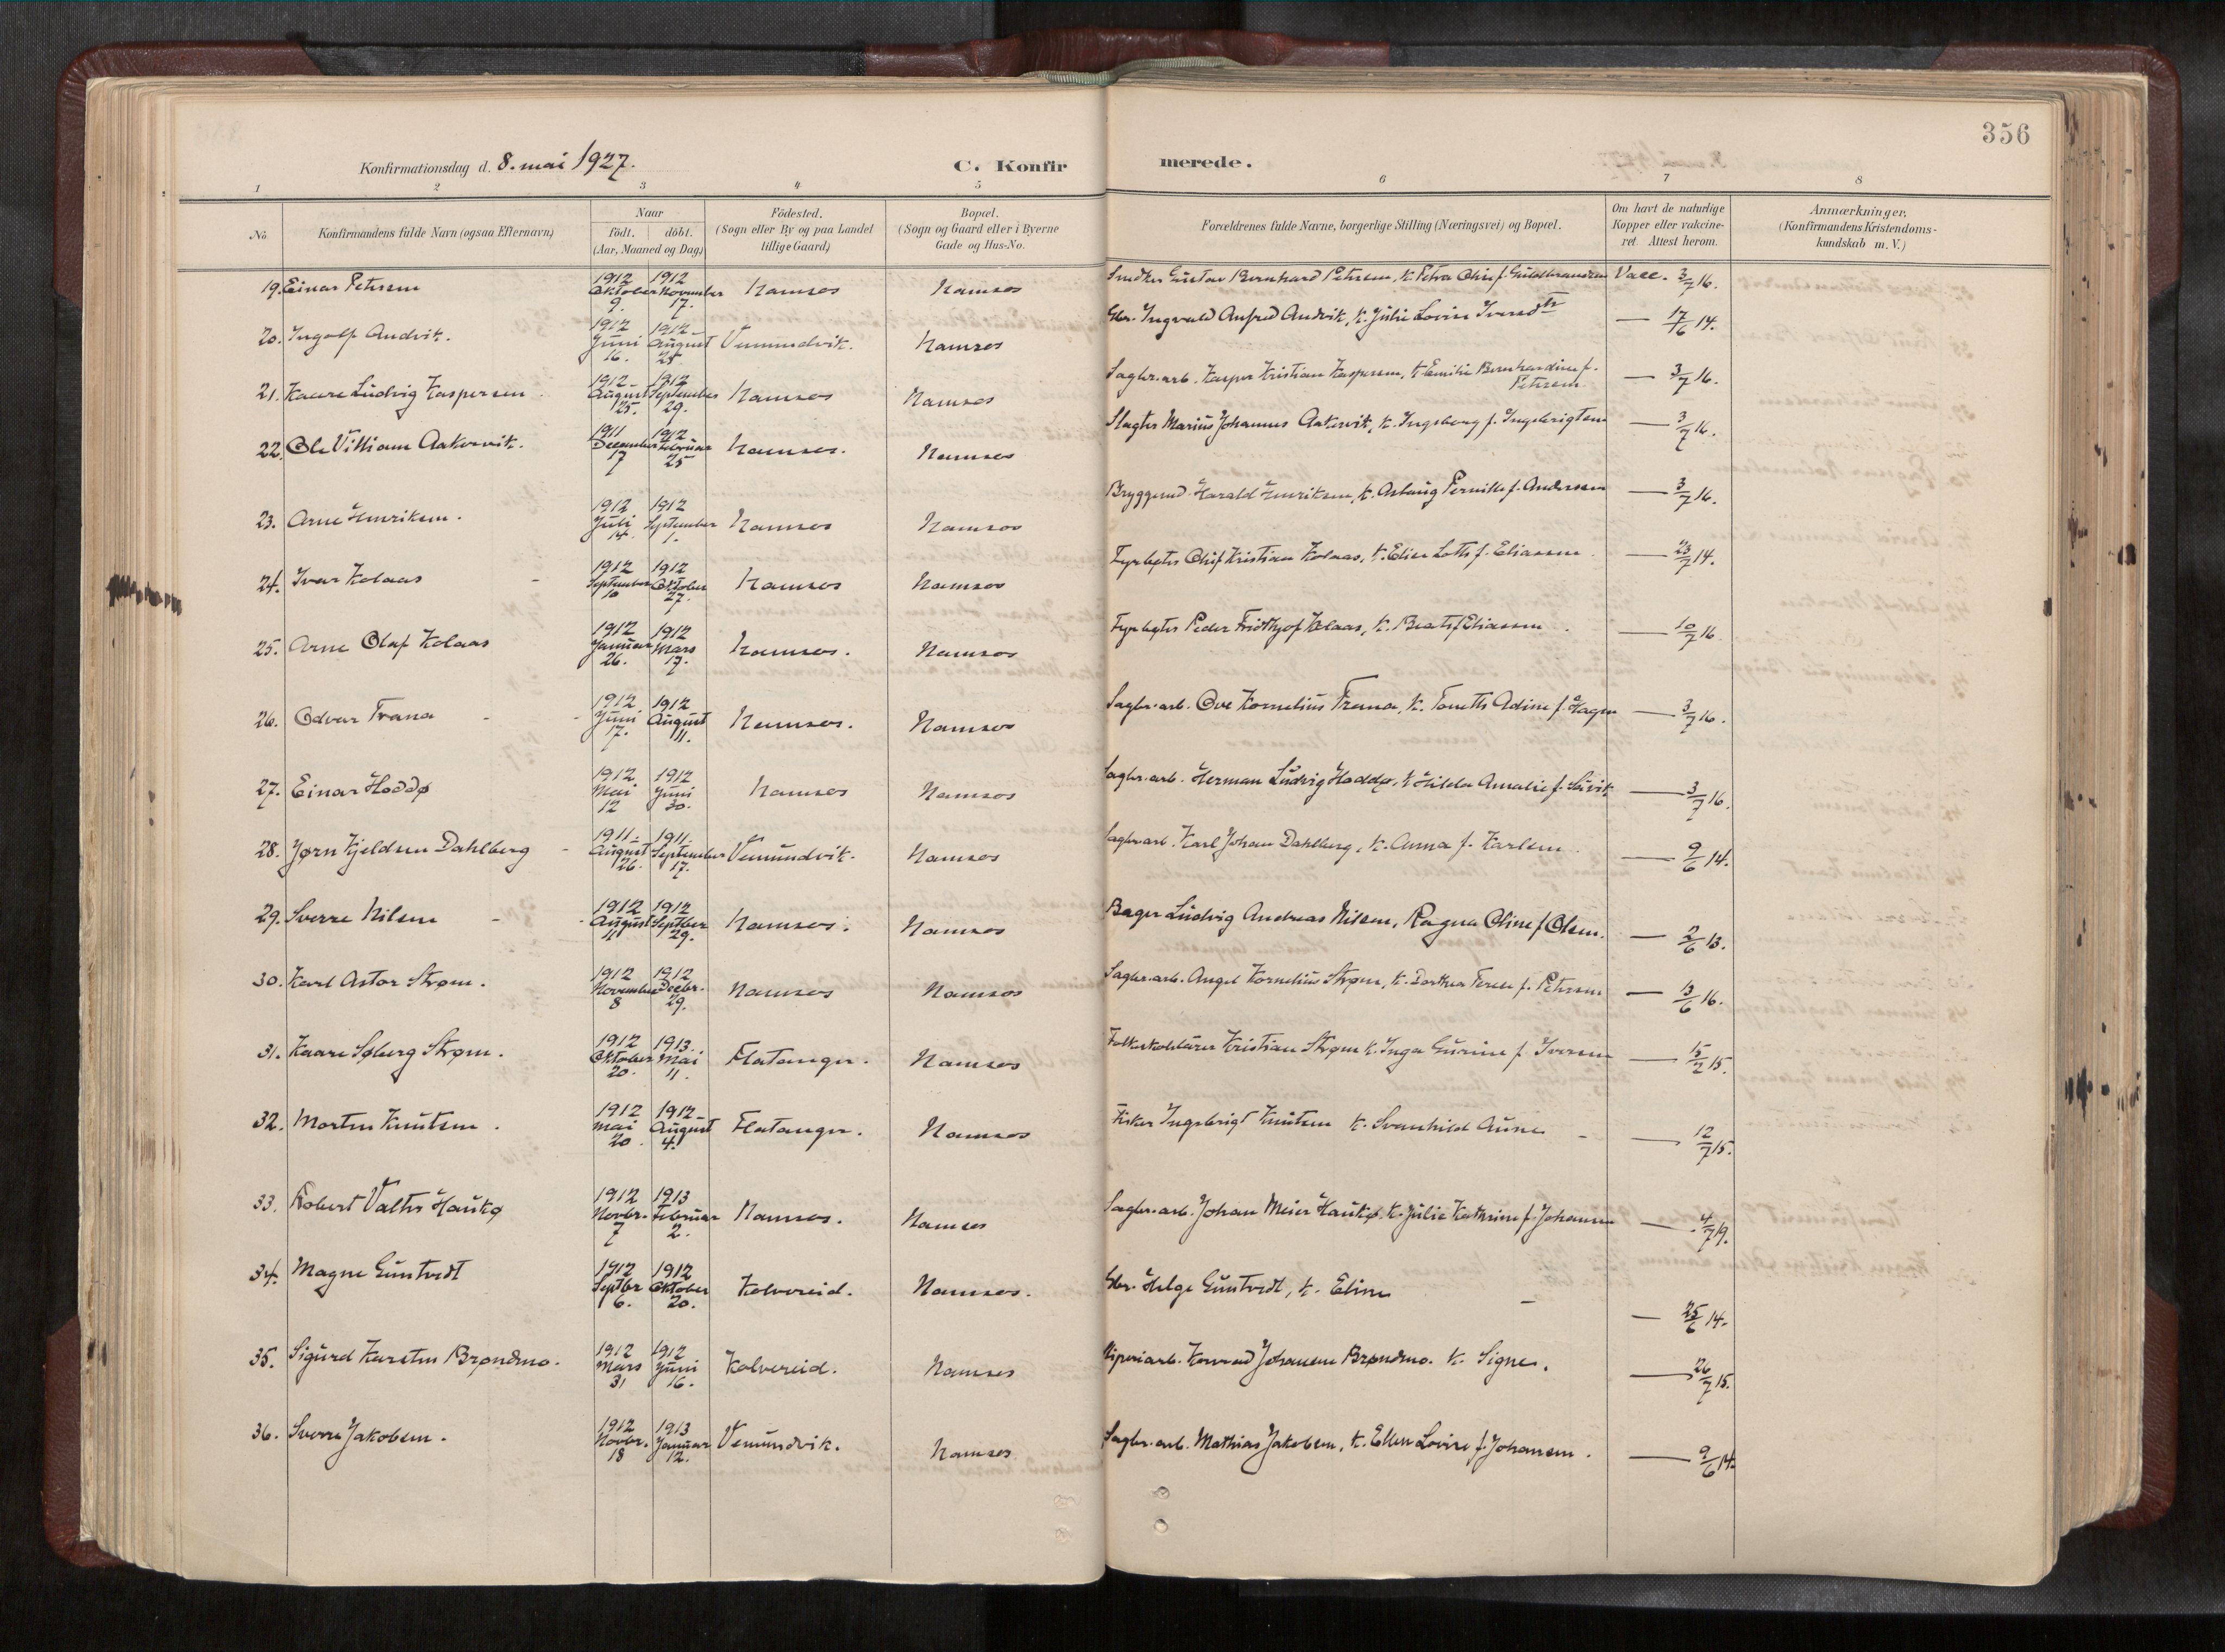 356
Konfirmationsdag d. 8. mai 1927.
C. Konfirmerede.
1 2 3 4 5 6 7 8
No
Konfirmandens fulde Navn (ogsaa Efternavn)
Naar
født. døbt.
(Aar, Maaned og Dag)
Fødested.
(Sogn eller By og paa Landet
tillige Gaard)
Bopæl.
(Sogn og Gaard eller i Byerne
Gade og Hus-No.
Forældrenes fulde Navne, borgerlige Stilling (Næringsvei) og Bopæl.
Om havt de naturlige
Kopper eller vakcine-
ret. Attest herom.
Anmærkninger.
(Konfirmandens Kristendoms-
kundskab m.V.)
19. Einar Petersen 1912 Oktober 9. 1912 November 17. Namsos Namsos Snedker Gustav Bernhard Petersen, K. Petra Oline f. Guldbrandsen Vacc. 3/7 16.
20. Ingolf Andvik. 1912 Juni 16. 1912 August 25 Vemundvik. Namsos Gbr. Ingvald Anfred Andvik, K. Julie Lovise Iversdtr — 17/6 14.
21. Kaare Ludvig Kaspersen 1912 August 25. 1912 September 29. Namsos Namsos Sagbr.arb. Kasper Kristian Kaspersen, K. Emilie Bernhardine f. Petersen — 3/7 16.
22. Ole Villiam Aakervik. 1911 December 17 1912 Februar 25 Namsos. Namsos Slagter Marius Johannes Aakervik, K. Ingeborg f. Ingebrigtsen — 3/7 16.
23. Arne Henriksen. 1912 Juli 14. 1912 September 1. Namsos Namsos Harald Henriksen, K. Aslaug Pernille f. Andersen — 3/7 16.
24. Ivar Kolaas 1912 September 10 1912 Oktober 27. Namsos Namsos Fyrbøter Oluf Kristian Kolaas, K. Elise Lotte f. Eliassen — 23/7 14.
25. Arne Olaf Kolaas 1912 Januar 26. 1912 Mars 17. Namsos. Namsos Fyrbøter Peder Fridthjof Kolaas, K. Beate f. Eliassen — 10/7 16.
26. Odvar Frana 1912 Juni 17. 1912 August 11. Namsos. Namsos Sagbr.arb. Ove Kornelius Frana, K. Tonette Adine f. Hagen — 3/7 16.
27. Einar Hoddø 1912 Mai 12 1912 Juni 30. Namsos Namsos Sagbr.arb. Herman Ludvig Hoddø, K. Hilda Amalie f. — 3/7 16.
28. Jørn Kjeldsen Dahlberg 1911. August 26. 1911. September 17. Vemundvik. Namsos Sagbr.arb. Karl Johan Dahlberg, K. Anna f. Karlsen — 9/6 14.
29. Sverre Nilsen 1912 August 11 1912 Septber 29. Namsos. Namsos Bager Ludvig Andreas Nilsen, Ragna Oline f. Olsen. — 2/6 13.
30. Karl Astor Strøm. 1912 November 8 1912 Decbr. 29. Namsos Namsos Sagbr.arb. Angel Kornelius Strøm, K. Dorthea Terese f. Petersen — 13/6 16.
31. Kaare Søberg Strøm. 1912 Oktober 20. 1913. Mai 11. Flatanger. Namsos Folkeskolelærer Kristian Strøm K. Inga Gurine f. Iversen — 15/2 15.
32. Morten Knutsen. 1912 Mai 20 1912 August 4. Flatanger. Namsos Fisker Ingebrigt Knutsen K. Svanhild Aune — 12/7 15.
33. Robert Valter Hautø 1912 Novbr. 7 1913 Februar 2. Namsos. Namsos Sagbr.arb. Johan Meier Hautø. K. Julie Kathrine f. Johansen — 4/7 19.
34. Magne Guntvedt 1912 Septbr 6. 1912 Oktober 20. Kolvereid. Namsos. Gbr. Helge Guntvedt, K. Eline — 25/6 14.
35. Sigurd Karsten Brøndmo. 1912 Mars 31 1912 Juni 16. Kolvereid. Namsos Konrad Johansen Brøndmo. K. Signe. — 26/7 15.
36. Sverre Jakobsen. 1912 Novbr. 18 1913 Januar 12. Vemundvik. Namsos Sagbr.arb. Mathias Jakobsen, K. Ellen Lovise f. Johansen. — 9/6 14.